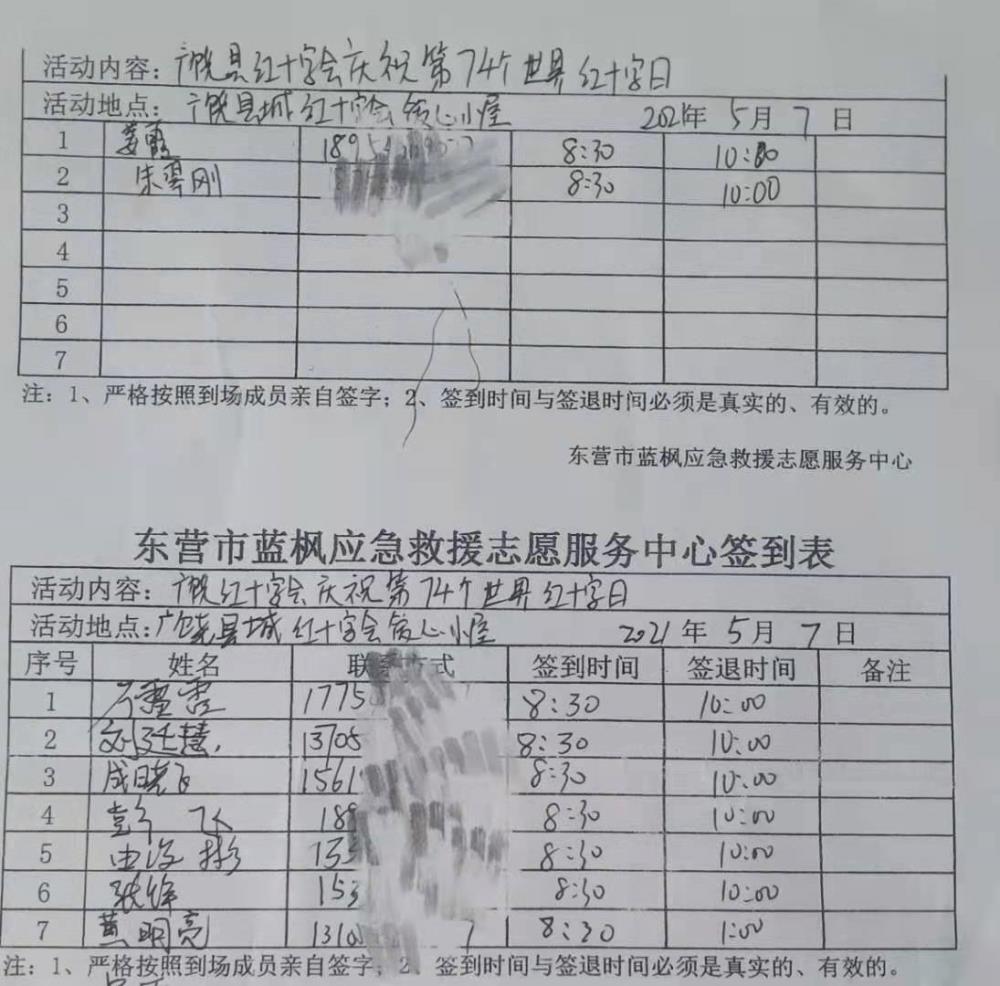 活动内容：广饶县红十字会庆祝第74个世界红十字日
活动地点：广饶县城红十字会 心小屋 2021年 5月 7日
1 姜霞 189 8:30 10:00
2 朱云刚 8:30 10:00
3
4
5
6
7
注：1、严格按照到场成员亲自签字；2、签到时间与签退时间必须是真实的、有效的。
东营市蓝枫应急救援志愿服务中心
东营市蓝枫应急救援志愿服务中心签到表
活动内容：广饶红十字会庆祝第74个世界红十字日
活动地点：广饶县城红十字会 心小屋 2021年 5月 7日
序号 姓名 联系方式 签到时间 签退时间 备注
1 1775 8:30 10:00
2 刘廷慧 13705 8:30 10:00
3 成晓飞 1561 8:30 10:00
4 飞 189 8:30 10:00
5 8:30 10:00
6 张徐 153 8:30 10:00
7 黄明亮 1310 8:30 1:00
注：1、严格按照到场成员亲自签字；2、签到时间与签退时间必须是真实的、有效的。